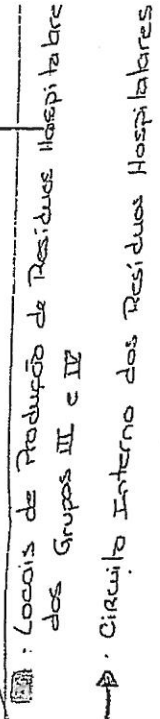 : Locais de Produção de Resíduos Hospitalare
dos Grupos III e IV
: Circuito Interno dos Resíduos Hospitalares